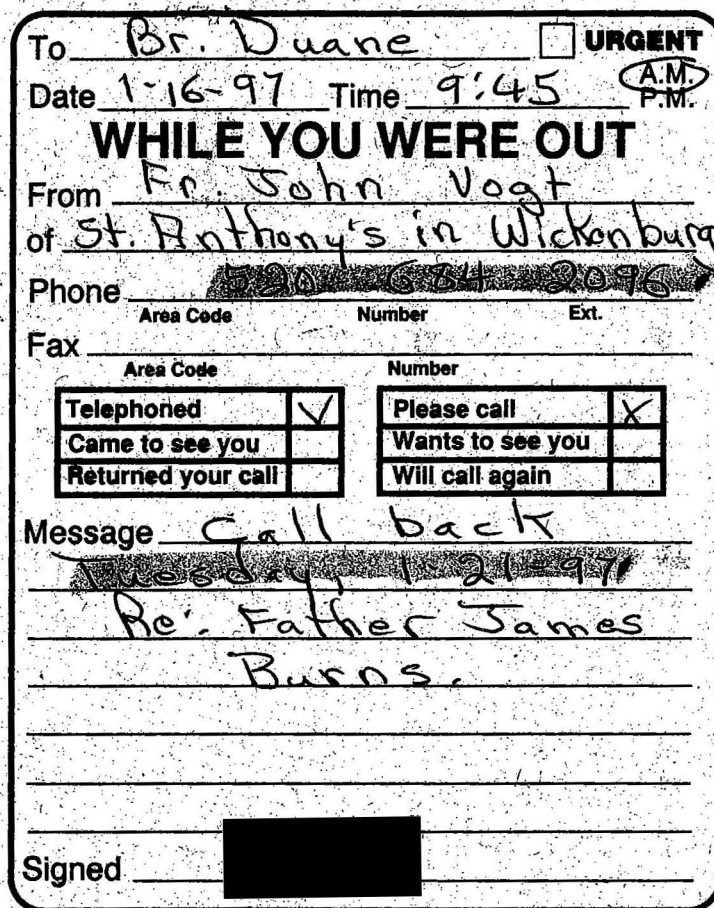 To Br. Duane URGENT
Date 1-16-97 Time 9:45 A.M.
P.M.
WHILE YOU WERE OUT
From Fr. John Vogt
of St. Anthony's in Wickenburg
Phone 520 684 2096
Area Code Number Ext.
Fax
Area Code Number
Telephoned ✓ Please call X
Came to see you Wants to see you
Returned your call Will call again
Message Call back
Tuesday, 1-21-97
Re: Father James
Burns.
Signed